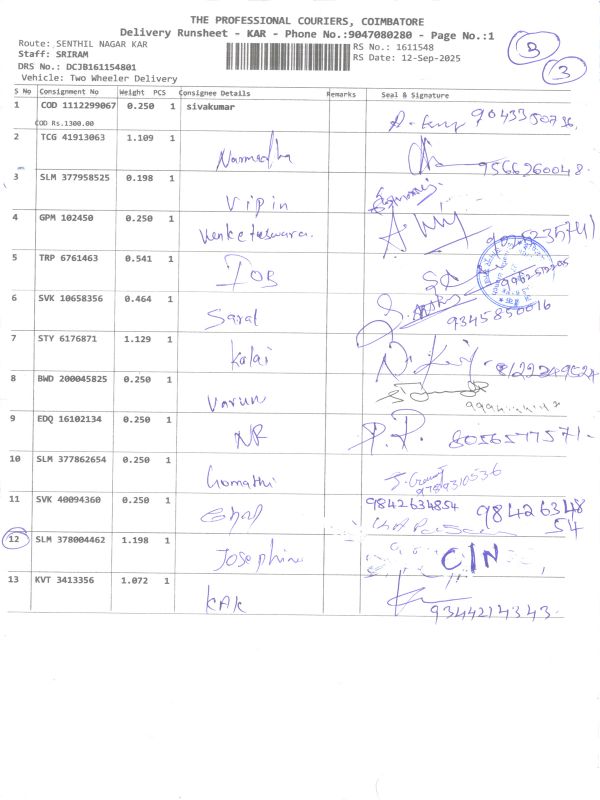 THE PROFESSIONAL COURIERS, COIMBATORE
Delivery Runsheet - KAR - Phone No.:9047080280 - Page No.:1
Route: SENTHIL NAGAR KAR RS No.: 1611548
Staff: SRIRAM RS Date: 12-Sep-2025
DRS No.: DCJB161154801
Vehicle: Two Wheeler Delivery
B
3
S No Consignment No Weight PCS Consignee Details Remarks Seal & Signature
1 COD 1112299067 0.250 1 sivakumar
COD Rs.1300.00
2 TCG 41913063 1.109 1 Narmedha 9566260048.
3 SLM 377958525 0.198 1 Vipin
4 GPM 102450 0.250 1
5 TRP 6761463 0.541 1 IOB
6 SVK 10658356 0.464 1 Saral 9345850016
7 STY 6176871 1.129 1 Kalai
8 BWD 200045825 0.250 1 Varun
9 EDQ 16102134 0.250 1 NR P.P. 8056577571-
10 SLM 377862654 0.250 1 Gomathi 9789310536
11 SVK 40094360 0.250 1 9842634854 98426348
54
12 SLM 378004462 1.198 1 Josephine CIN
13 KVT 3413356 1.072 1 KAK 9344214343.